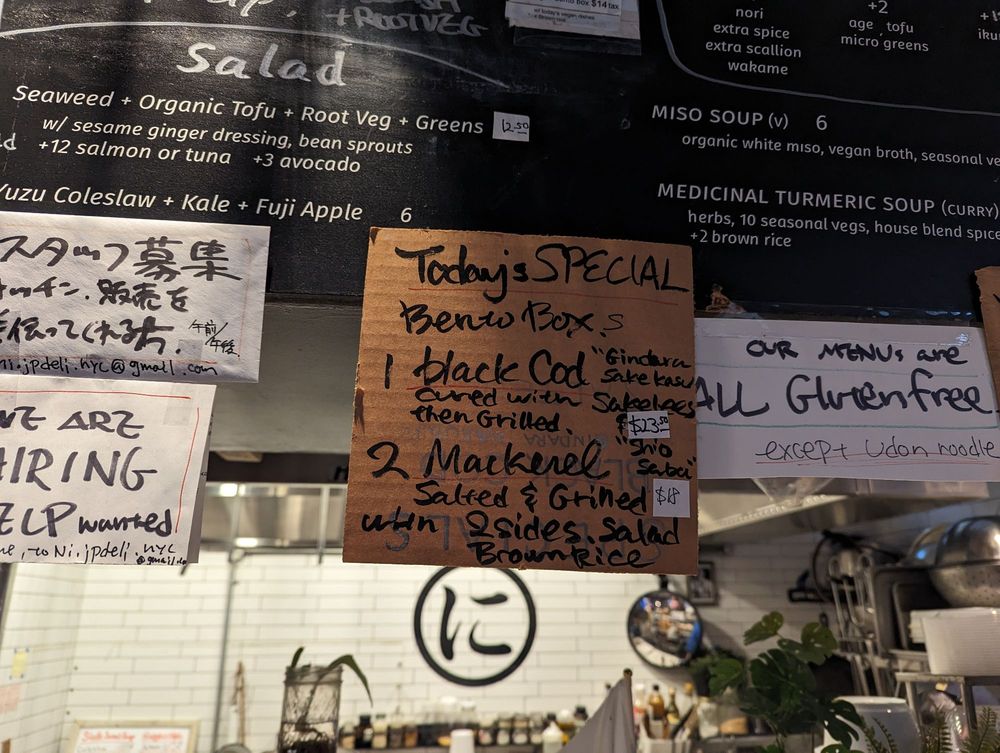 + ROOT VEG
box $14 tax
w/ today's vegan dishes
Salad
Seaweed + Organic Tofu + Root Veg + Greens 12.50
w/ sesame ginger dressing, bean sprouts
+12 salmon or tuna +3 avocado
Yuzu Coleslaw + Kale + Fuji Apple 6
nori
extra spice
extra scallion
wakame
+2
age tofu
micro greens
MISO SOUP (V) 6
organic white miso, vegan broth, seasonal ve
MEDICINAL TURMERIC SOUP (CURRY)
herbs, 10 seasonal vegs, house blend spice
+2 brown rice
スタッフ募集
キッチン.販売を
手伝ってくれる方.
午前/午後
ni.jpdeli.nyc@gmail.com
WE ARE
HIRING
HELP wanted
to Ni.jpdeli.nyc
@gmail.co
Today's SPECIAL
Bento Box.s
1 black Cod "Gindara
Sakekasu
cured with Sakelees
then Grilled. $23.50
2 Mackerel "Shio
Saba"
Salted & Grilled $18
with 2 sides. Salad
Brown Rice
OUR MENUs are
ALL Gluten free
except Udon noodle
に